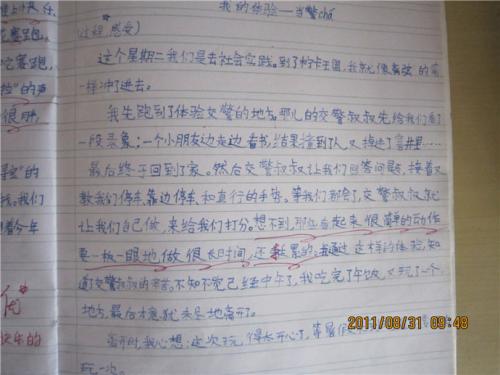 我的体验——当警chá
过程,感受)
这个星期二我们是去社会实践。到了柠卡王国,我就像离弦的箭
一样冲了进去。
我先跑到了体验交警的地方。那儿的交警叔叔先给我们看了
一段录象:一个小朋友边走边看书,结果撞到了人,又掉进了窨井里……
最后终于回到了家。然后交警叔叔让我们回答问题,接着又
教我们停车,靠边停车,和直行的手势。等我们都会了,交警叔叔就
让我们自己做,来给我们打分。想不到,那些看起来很简单的动作
要一板一眼地做很长时间,还蛮累的。我通过这样的体验,知
道了交警叔叔的辛苦。不知不觉已经中午了,我吃完了午饭,又玩了一个
地方,最后才意犹未尽地离开了。
离开时,我心想:这次玩得太开心了,等暑假
玩一次。
2011/08/31 09:48
快乐
赛跑,
"的声
很胖,
"的
我们
今年
优
快乐的